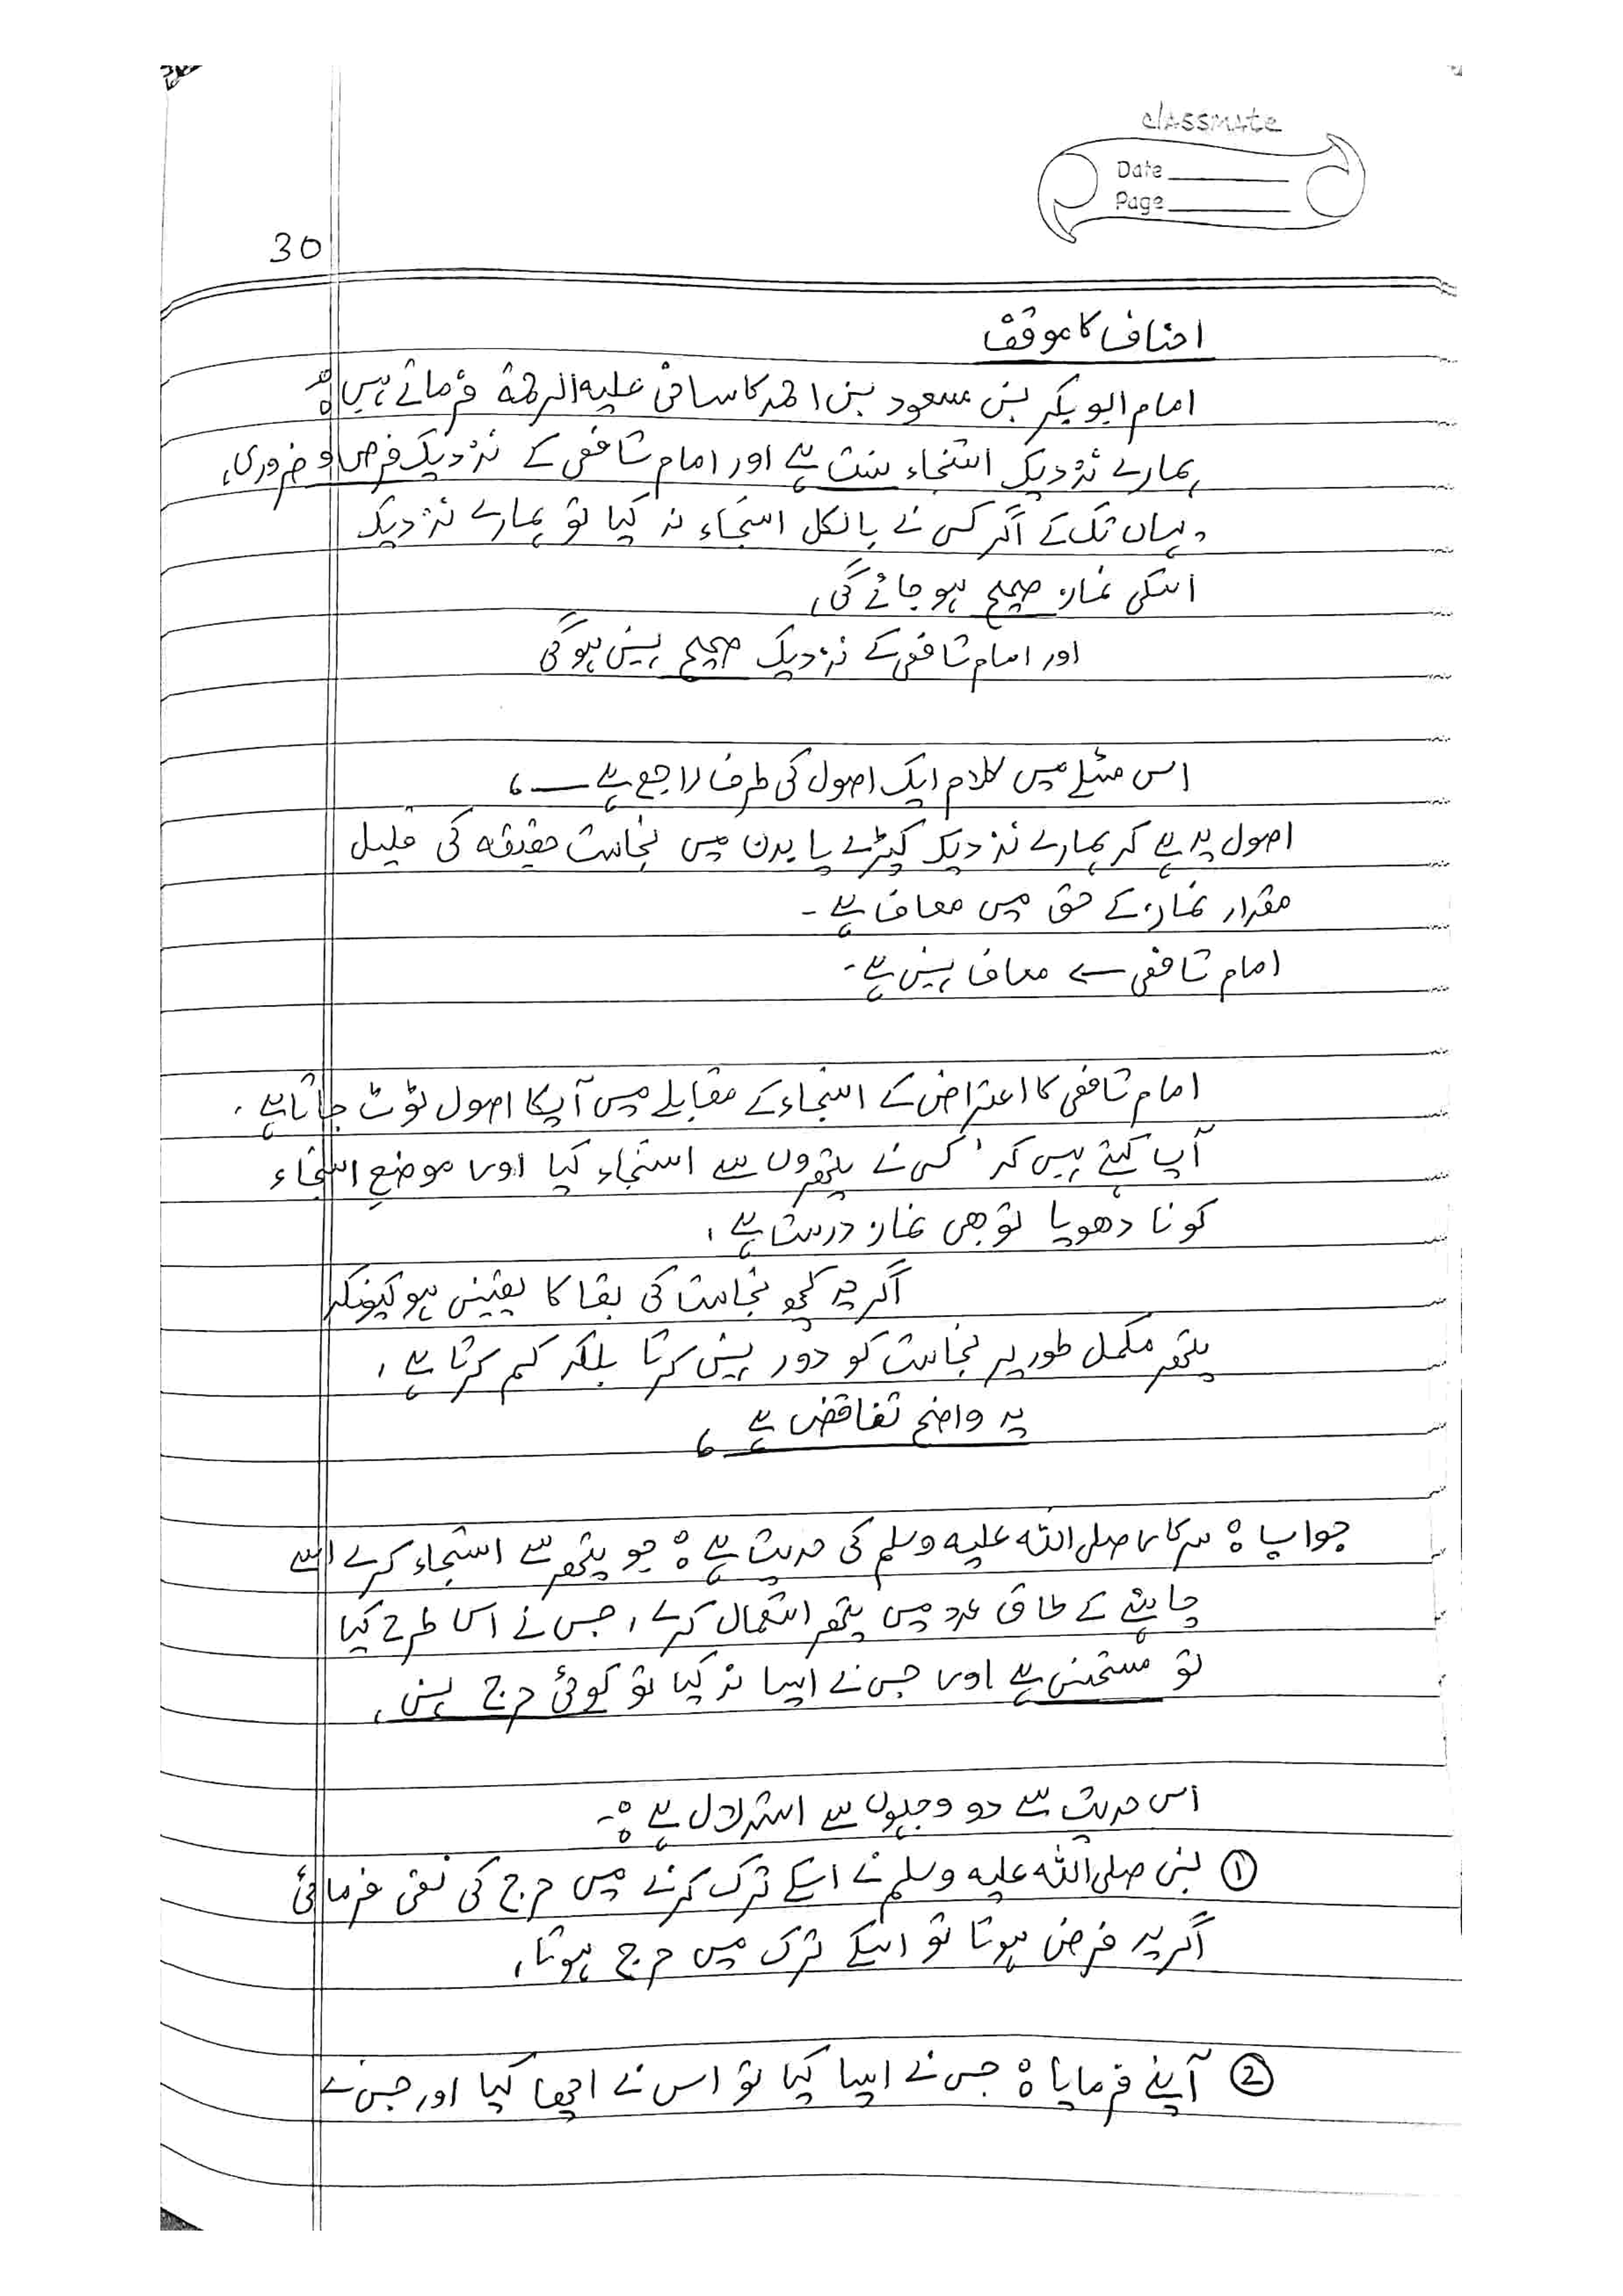 classmate
Date
Page
30
احناف کا موقف
امام ابو بکر بن مسعود بن احمد کاسانی علیہ الرحمۃ فرماتے ہیں:
ہمارے نزدیک استنجاء سنت ہے اور امام شافعی کے نزدیک فرض و ضروری،
یہاں تک کے اگر کسی نے بالکل استنجاء نہ کیا تو ہمارے نزدیک
اسکی نماز صحیح ہو جائے گی،
اور امام شافعی کے نزدیک صحیح نہیں ہوگی
اس مسئلے میں کلام ایک اصول کی طرف راجع ہے ــ،
اصول یہ ہے کہ ہمارے نزدیک کپڑے یا بدن میں نجاست حقیقہ کی قلیل
مقدار نماز کے حق میں معاف ہے -
امام شافعی سے معاف نہیں ہے -
امام شافعی کا اعتراض کے استنجاء کے مقابلے میں آپکا اصول ٹوٹ جاتا ہے،
آپ کہتے ہیں کہ ' کسی نے پتھروں سے استنجاء کیا اور موضعِ استنجاء
کو نا دھویا تو بھی نماز درست ہے،
اگرچہ کچھ نجاست کی بقا کا یقین ہو کیونکہ
پتھر مکمل طور پر نجاست کو دور نہیں کرتا بلکہ کم کرتا ہے،
یہ واضح تناقض ہے،
جواب: سرکار صلی اللہ علیہ وسلم کی حدیث ہے: جو پتھر سے استنجاء کرے اسے
چاہئے کے طاق عدد میں پتھر استعمال کرے، جس نے اس طرح کیا
تو مستحسن ہے اور جس نے ایسا نہ کیا تو کوئی حرج نہیں،
اس حدیث سے دو وجہوں سے استدلال ہے:-
① نبی صلی اللہ علیہ وسلم نے اسکے ترک کرنے میں حرج کی نفی فرمائی
اگر یہ فرض ہوتا تو اسکے ترک میں حرج ہوتا،
② آپنے فرمایا: جس نے ایسا کیا تو اس نے اچھا کیا اور جس نے